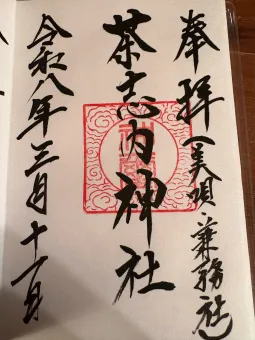 奉拝(美唄・兼務社)
茶志内神社
令和八年三月十一日